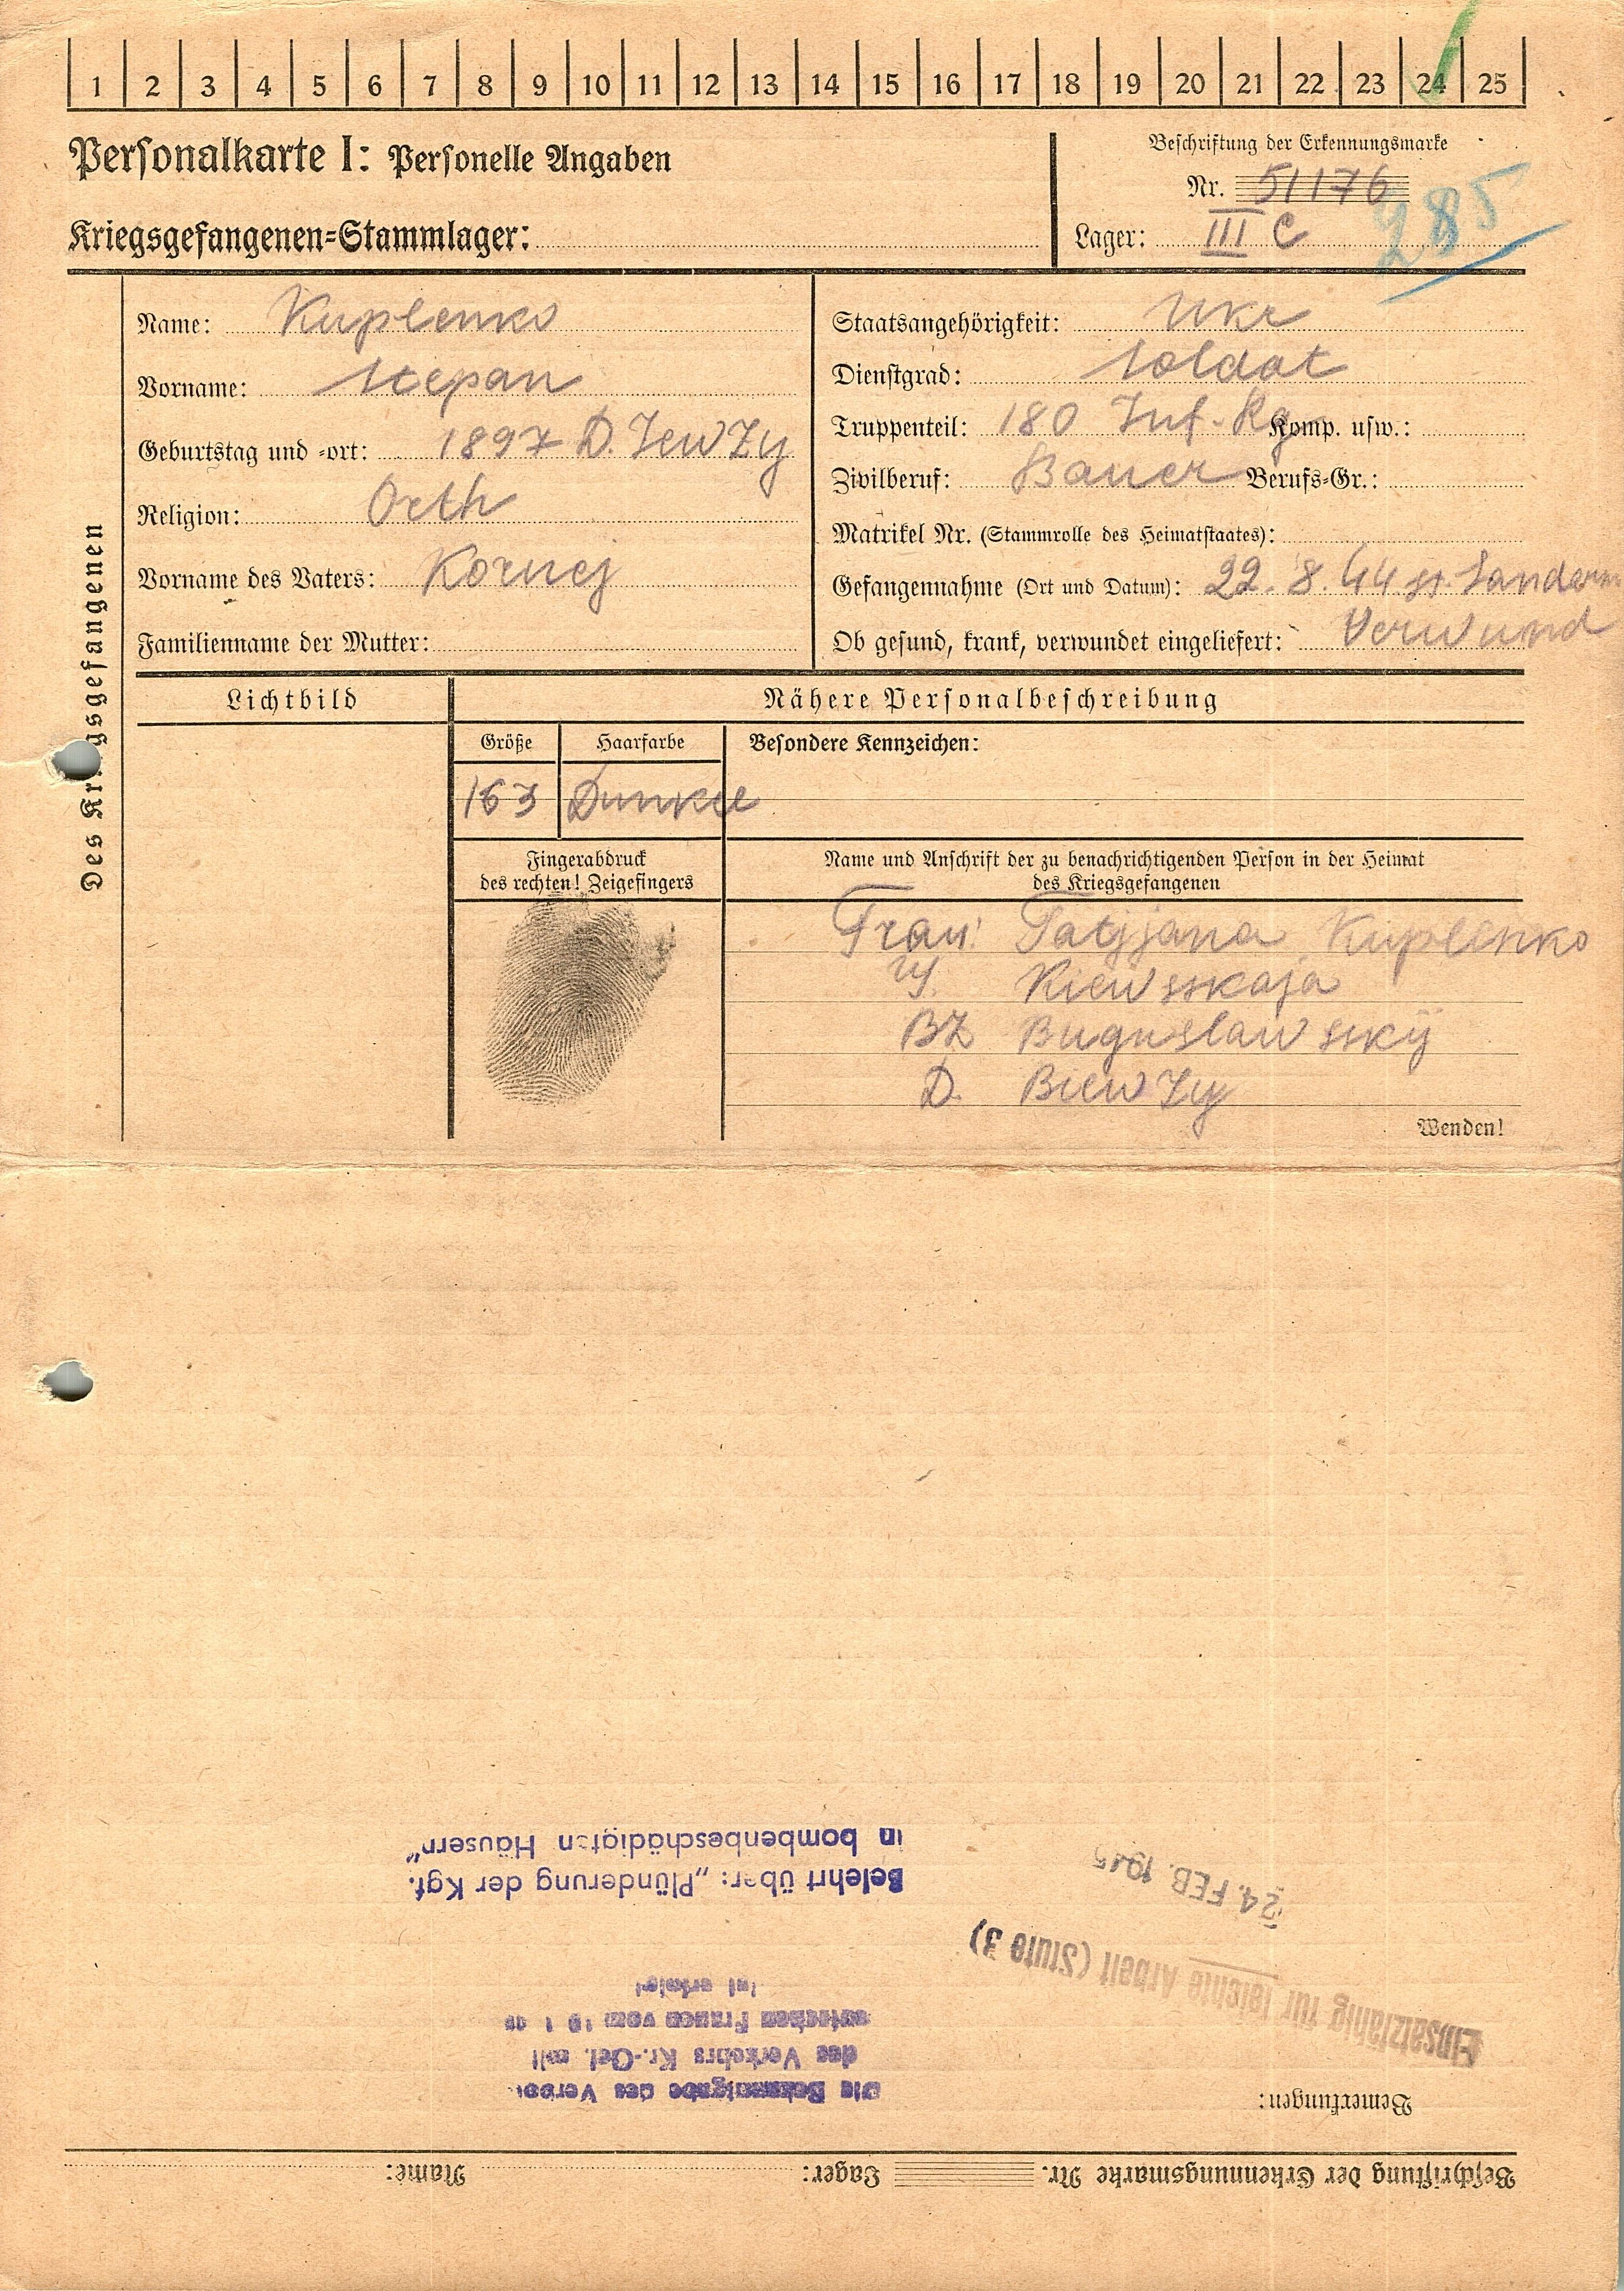 1 2 3 4 5 6 7 8 9 10 11 12 13 14 15 16 17 18 19 20 21 22 23 24 25
Personalkarte I: Personelle Angaben
Kriegsgefangenen=Stammlager:
Beschriftung der Erkennungsmarke
Nr. 51176
Lager: III C
285
Des Kr gsgefangenen
Name: Kuplenko
Vorname: Stepan
Geburtstag und =ort: 1897 D.
Religion: Orth
Vorname des Vaters: Kornej
Familienname der Mutter:
Staatsangehörigkeit: Ukr
Dienstgrad: Soldat
Truppenteil: 180 Inf.-Rg Komp. usw.:
Zivilberuf: Bauer Berufs=Gr.:
Matrikel Nr. (Stammrolle des Heimatstaates):
Gefangennahme (Ort und Datum): 22.8.44 st. Sandom
Ob gesund, krank, verwundet eingeliefert: Verwund
Lichtbild
Nähere Personalbeschreibung
Größe Haarfarbe Besondere Kennzeichen:
163 Dunkel
Fingerabdruck
des rechten! Zeigefingers
Name und Anschrift der zu benachrichtigenden Person in der Heimat
des Kriegsgefangenen
Frau: Tatjjana Kuplenko
Kiewsskaja
BZ Buguslawsskij
D. Biewzy
Wenden!
Beschriftung der Erkennungsmarke Nr. Lager: Name:
Bemerkungen:
Einsatzfähig für leichte Arbeit (Stufe 3)
24. FEB. 1945
Die Bekanntgabe des Verbots
des Verkehrs Kr.-Gef. mit
Frauen vom
ist erfolgt
Belehrt über: „Plünderung der Kgf.
in bombenbeschädigten Häusern"